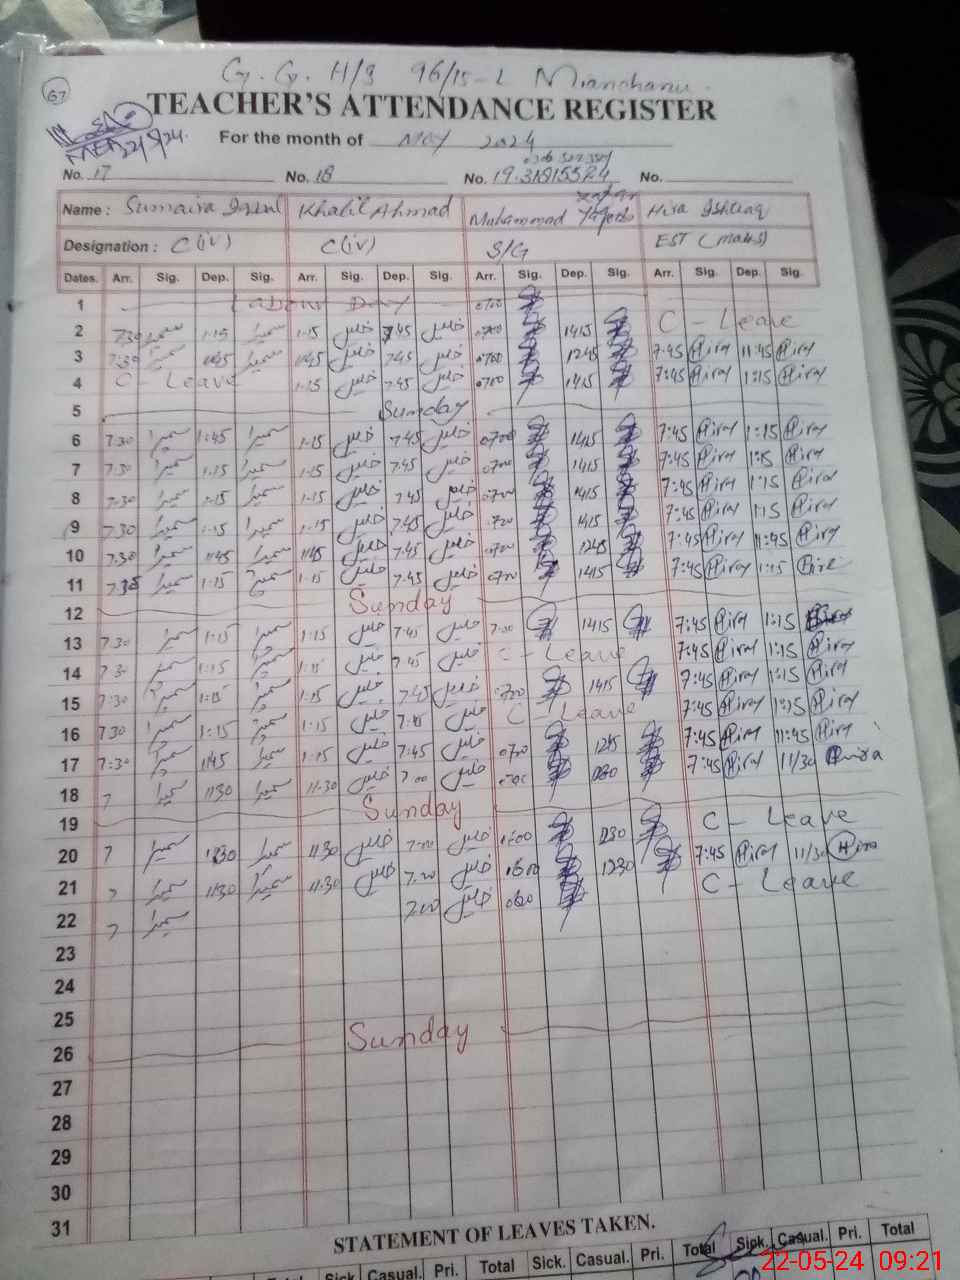 G. G. H/S 96/15-L Mianchanu.
67
TEACHER'S ATTENDANCE REGISTER
22/5/24.
For the month of May 2024
No. 17 No. 18 No. 19. No.
Name : Sumaira Iqbal Khalil Ahmad Muhammad Hira Ishtiaq
Designation : C(iv) C(iv) S/G EST (
Dates. Arr. Sig. Dep. Sig. Arr. Sig. Dep. Sig. Arr. Sig. Dep. Sig. Arr. Sig. Dep. Sig.
1 Labour Day 0700
2 7:30 سمیرا 1:15 سمیرا 1:15 خلیل 7:45 خلیل 0700 1415 C - Leave
3 7:30 سمیرا 11:45 سمیرا 11:45 خلیل 7:45 خلیل 0700 1245 7:45 Hira 11:45 Hira
4 C - Leave 1:15 خلیل 7:45 خلیل 0700 1415 7:45 Hira 1:15 Hira
5 Sunday
6 7:30 سمیرا 1:45 سمیرا 1:15 خلیل 7:45 خلیل 0700 1415 7:45 Hira 1:15 Hira
7 7:30 سمیرا 1:15 سمیرا 1:15 خلیل 7:45 خلیل 0700 1415 7:45 Hira 1:15 Hira
8 7:30 سمیرا 1:15 سمیرا 1:15 خلیل 7:45 خلیل 0700 1415 7:45 Hira 1:15 Hira
9 7:30 سمیرا 1:15 سمیرا 1:15 خلیل 7:45 خلیل 0720 1415 7:45 Hira 1:15 Hira
10 7:30 سمیرا 11:45 سمیرا 11:45 خلیل 7:45 خلیل 0700 1245 7:45 Hira 11:45 Hira
11 7:35 سمیرا 1:15 سمیرا 1:15 خلیل 7:45 خلیل 0700 1415 7:45 Hira 1:15 Hira
12 Sunday
13 7:30 سمیرا 1:15 سمیرا 1:15 خلیل 7:45 خلیل 7:00 1415 7:45 Hira 1:15
14 7:30 سمیرا 1:15 سمیرا 1:15 خلیل 7:45 خلیل C - Leave 7:45 Hira 1:15 Hira
15 7:30 سمیرا 1:15 سمیرا 1:15 خلیل 7:45 خلیل 0720 1415 7:45 Hira 1:15 Hira
16 7:30 سمیرا 1:15 سمیرا 1:15 خلیل 7:45 خلیل C - Leave 7:45 Hira 1:15 Hira
17 7:30 سمیرا 11:45 سمیرا 1:15 خلیل 7:45 خلیل 0700 1245 7:45 Hira 11:45 Hira
18 7 سمیرا 11:30 سمیرا 11:30 خلیل 7:00 خلیل 7:45 Hira 11/30 Hira
19 Sunday
20 7 سمیرا 11:30 سمیرا 11:30 خلیل 7:00 خلیل 1230 C - Leave
21 7 سمیرا 11:30 سمیرا 11:30 خلیل 7:00 خلیل 1230 7:45 Hira 11/30 Hira
22 7 سمیرا 7:00 خلیل C - Leave
23
24
25
26 Sunday
27
28
29
30
31
STATEMENT OF LEAVES TAKEN.
Total Sick. Casual. Pri. Total Sick. Casual. Pri. Total Sick. Casual. Pri. Total
22-05-24 09:21